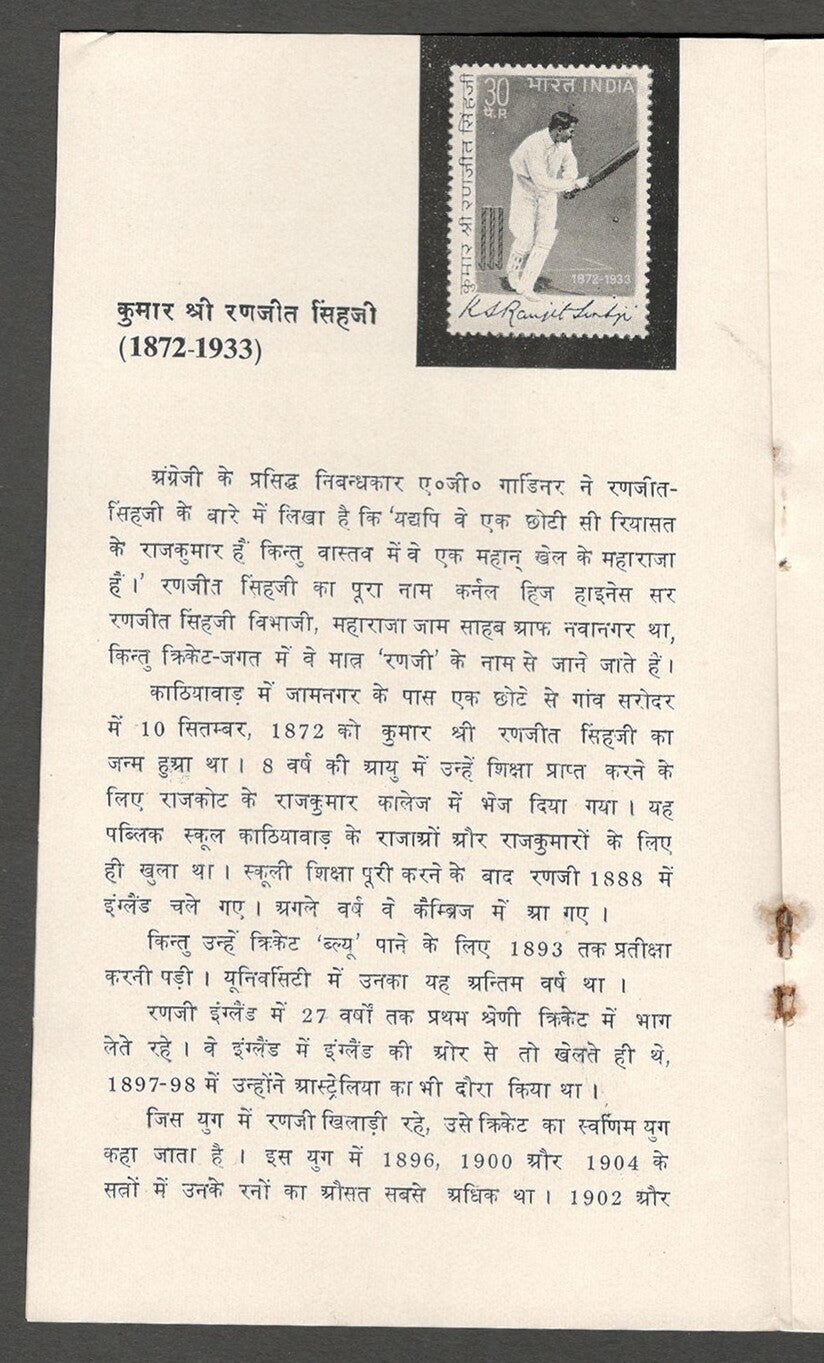 भारत INDIA
30
पै.P
कुमार श्री रणजीत सिंहजी
1872-1933
K S Ranjitsinhji
कुमार श्री रणजीत सिंहजी
(1872-1933)
अंग्रेजी के प्रसिद्ध निबन्धकार ए०जी० गार्डिनर ने रणजीत-
सिंहजी के बारे में लिखा है कि ‘यद्यपि वे एक छोटी सी रियासत
के राजकुमार हैं किन्तु वास्तव में वे एक महान् खेल के महाराजा
हैं।’ रणजीत सिंहजी का पूरा नाम कर्नल हिज हाइनेस सर
रणजीत सिंहजी विभाजी, महाराजा जाम साहब आफ नवानगर था,
किन्तु क्रिकेट-जगत में वे मात्र ‘रणजी’ के नाम से जाने जाते हैं।
काठियावाड़ में जामनगर के पास एक छोटे से गांव सरोदर
में 10 सितम्बर, 1872 को कुमार श्री रणजीत सिंहजी का
जन्म हुआ था। 8 वर्ष की आयु में उन्हें शिक्षा प्राप्त करने के
लिए राजकोट के राजकुमार कालेज में भेज दिया गया। यह
पब्लिक स्कूल काठियावाड़ के राजाओं और राजकुमारों के लिए
ही खुला था। स्कूली शिक्षा पूरी करने के बाद रणजी 1888 में
इंग्लैंड चले गए। अगले वर्ष वे कैम्ब्रिज में आ गए।
किन्तु उन्हें क्रिकेट ‘ब्ल्यू’ पाने के लिए 1893 तक प्रतीक्षा
करनी पड़ी। यूनिवर्सिटी में उनका यह अन्तिम वर्ष था।
रणजी इंग्लैंड में 27 वर्षों तक प्रथम श्रेणी क्रिकेट में भाग
लेते रहे। वे इंग्लैंड में इंग्लैंड की ओर से तो खेलते ही थे,
1897-98 में उन्होंने आस्ट्रेलिया का भी दौरा किया था।
जिस युग में रणजी खिलाड़ी रहे, उसे क्रिकेट का स्वर्णिम युग
कहा जाता है। इस युग में 1896, 1900 और 1904 के
सत्रों में उनके रनों का औसत सबसे अधिक था। 1902 और